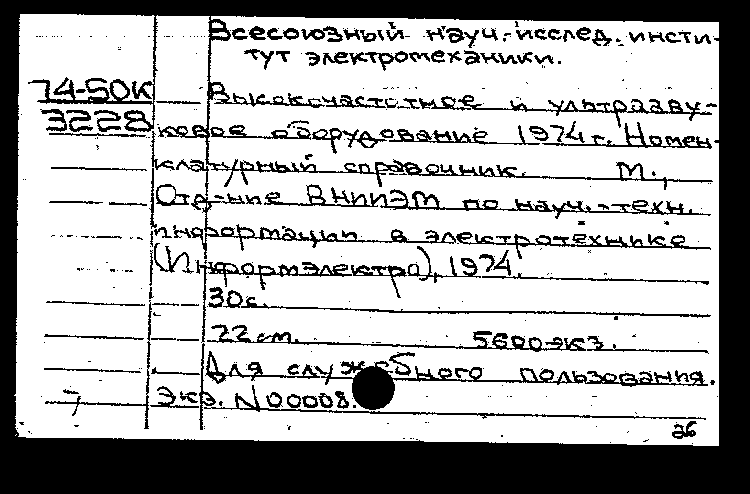 Всесоюзный науч.-исслед. инсти-
тут электромеханики.
74-50К
Высокочастотное и ультразву-
3228
ковое оборудование 1974 г. Номен-
клатурный справочник. М.,
Отд-ние ВНИИЭМ по науч.-техн.
информации в электротехнике
(Информэлектро), 1974.
30с.
22 см. 5600 экз.
Для служебного пользования.
Экз. N00008.
26